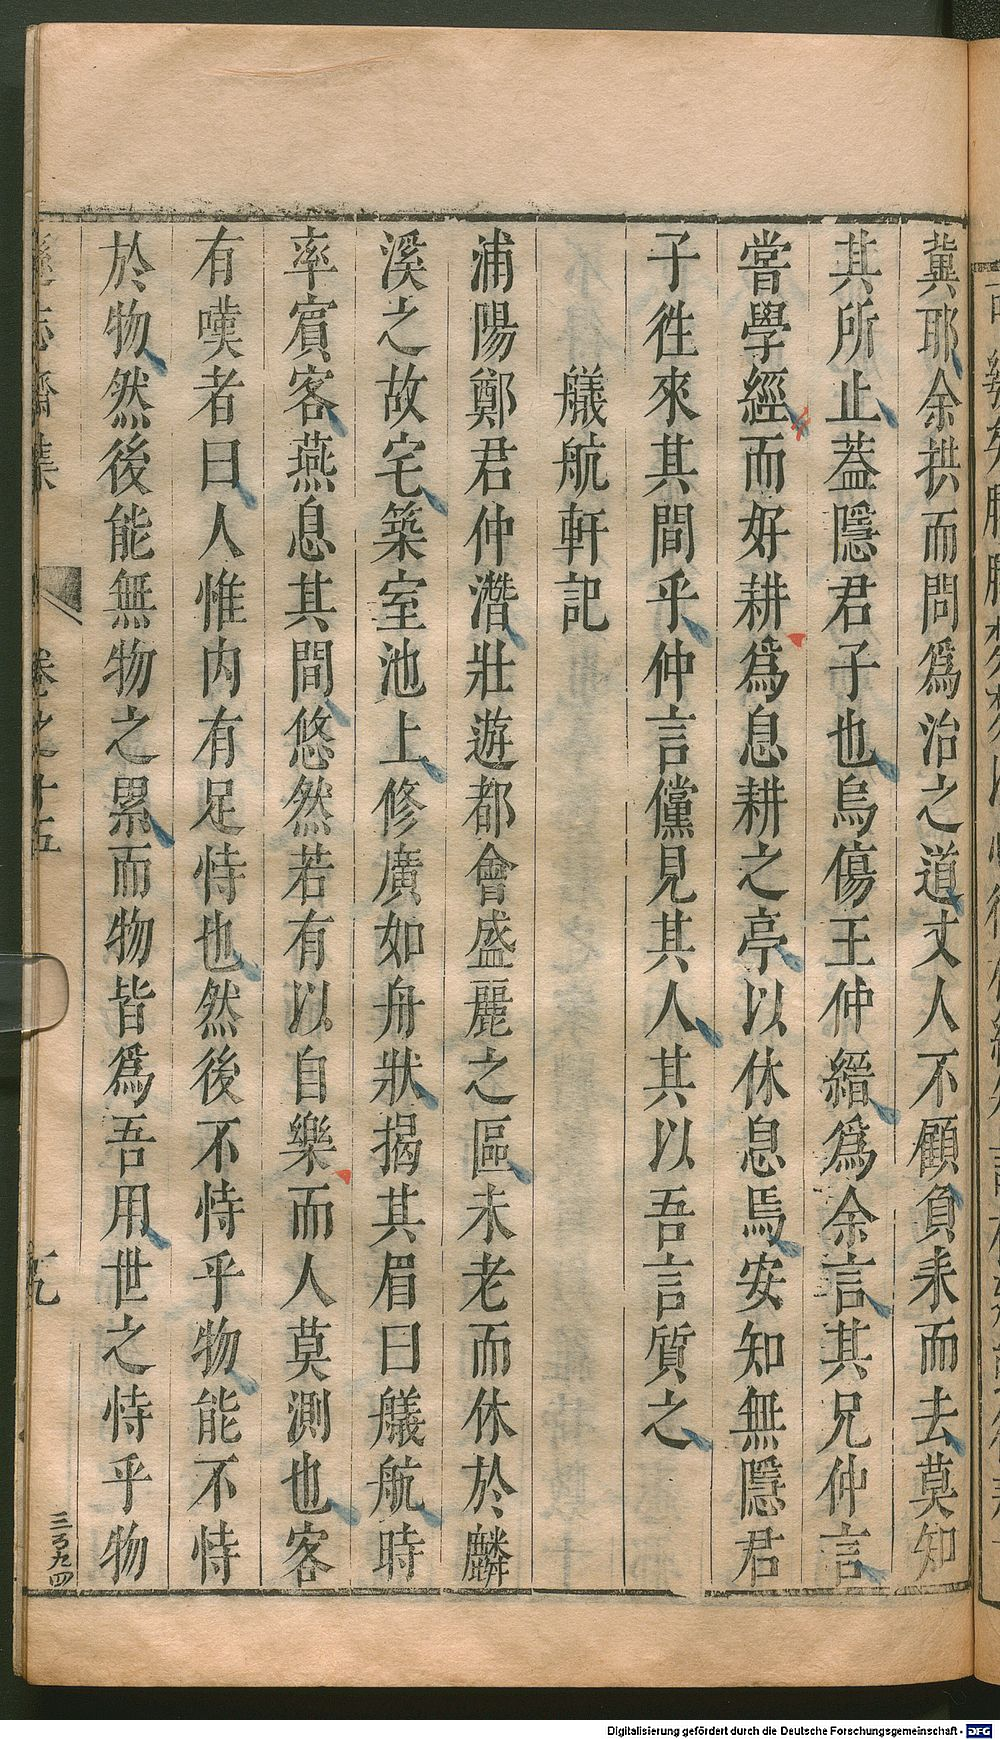 冀耶余拱而問爲治之道丈人不顧負耒而去莫知
其所止蓋隱君子也烏傷王仲縉爲余言其兄仲言
嘗學經而好耕爲息耕之亭以休息焉安知無隱君
子徃來其間乎仲言儻見其人其以吾言質之
艤航軒記
浦陽鄭君仲潛壯遊都會盛麗之區未老而休於麟
溪之故宅築室池上修廣如舟狀揭其眉曰艤航時
率賓客燕息其間悠然若有以自樂而人莫測也客
有嘆者曰人惟内有足恃也然後不恃乎物能不恃
於物然後能無物之累而物皆爲吾用世之恃乎物
遜志齋集
卷之十五
九
三百九四
Digitalisierung gefördert durch die Deutsche Forschungsgemeinschaft - DFG